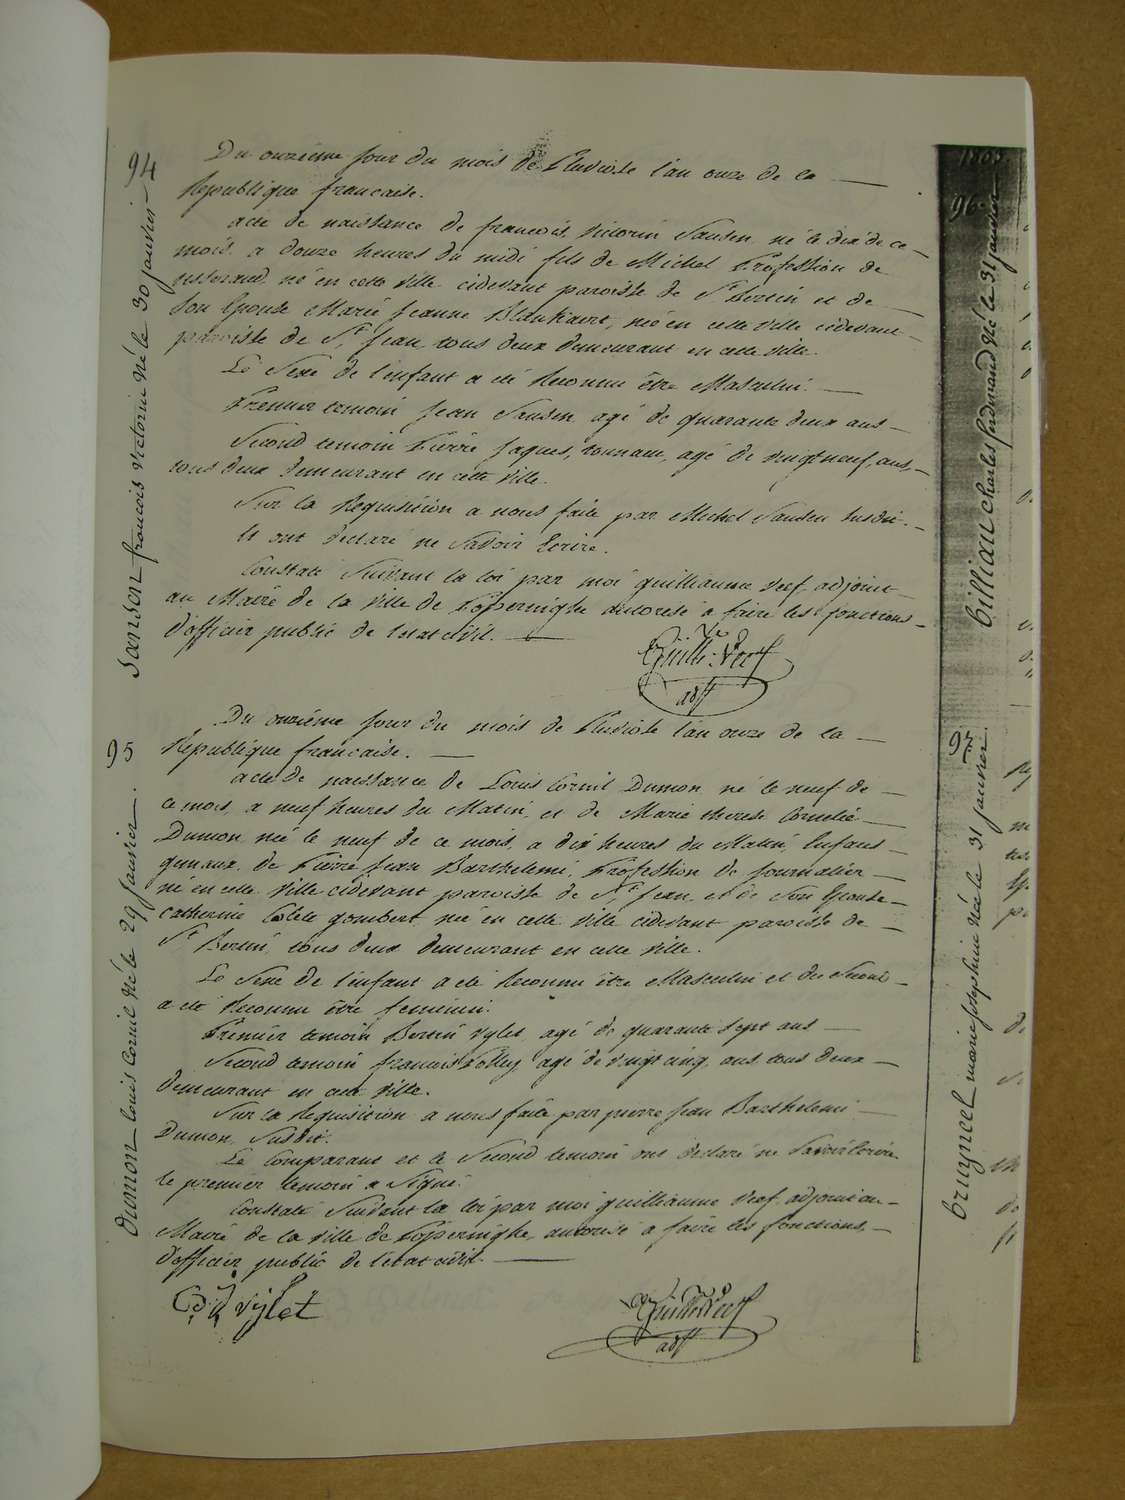 94
Sansen francois victorin né le 30 janvier
Du onzieme jour du mois de Pluviose l'an onze de la
Republique francaise.
acte de naissance de francois Victorin Sansen né le dix de ce
mois a douze heures du midi fils de Michel Profession de
tisserand né en cette ville cidevant paroisse de St Bertin et de
Son Epouse Marie Jeanne née en cette ville cidevant
paroisse de St Jean tous deux demeurant en cette ville.
Le Sexe de l'enfant a été Reconnu être Masculin.
Premier temoin Jean Sansen agé de quarante deux ans
Second temoin Pierre Jaques, agé de vingt neuf ans,
tous deux demeurant en cette ville.
Sur la Requisition a nous faite par Michel Sansen susdit.
Ils ont declaré ne Savoir Ecrire.
Constaté Suivant la loi par moi guilliaume Verf adjoint
au Maire de la ville de Poperinghe autorisé a faire les fonctions
d'officier public de l'etat civil.
Guille: Verf
adjt
95
Dumon Louis Cornil né le 29 janvier.
Du onzième jour du mois de Pluviose l'an onze de la
Republique francaise.
acte de naissance de Louis Cornil Dumon né le neuf de
ce mois, a neuf heures du Matin, et de Marie therese Cornelie
Dumon née le neuf de ce mois, a dix heures du Matin, Enfans
gemaux de Pierre Jean Barthelemi, Profession de journalier
né en cette ville cidevant paroisse de St Jean et de Son Epouse
catherine gombert née en cette ville cidevant paroisse de
St Bertin, tous deux demeurant en cette ville.
Le Sexe de l'enfant a été Reconnu être Masculin et du Second
a été Reconnu être feminin.
Premier temoin Bertin Vylet agé de quarante Sept ans
Second temoin francois agé de vingt cinq ans tous deux
demeurant en cette ville.
Sur la Requisition a nous faite par pierre Jean Barthelemi
Dumon Susdit.
Le Comparant et le Second temoin ont declaré ne Savoir Ecrire
le premier temoin a Signé.
Constaté Suivant la loi par moi guilliaume Verf adjoint au
Maire de la ville de Poperinghe, autorisé a faire les fonctions
d'officier public de l'etat civil.
vylet
Guille: Verf
adjt
1803.
96.
billiau charles ferdinand né le 31 janvier
97
bruyneel marie josephine née le 31 janvier.